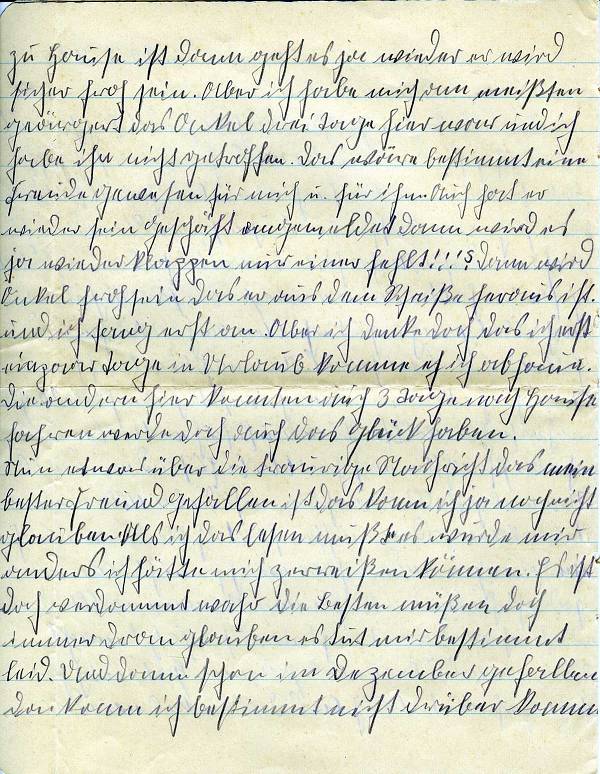 zu Hause ist dann geht es ja wieder er wird
sicher froh sein. Aber ich habe mich am meißten
geärgert das Onkel drei Tage hier war und ich
habe ihn nicht getroffen. Das wäre bestimmt eine
Freude gewesen für mich u. für ihm. Auch hat er
wieder sein Geschäft angemeldet dann wird es
ja wieder klappen nur einer fehlt!!! Dann wird
Onkel froh sein das er aus dem Scheiße heraus ist.
und ich fang erst an. Aber ich denke doch das ich erst
ein paar Tage in Urlaub komme eh ich abhaue.
Die andern hier konnten auch 3 Tage nach Hause
fahren werde doch auch das Glück haben.
Nun etwas über die traurige Nachricht das mein
bester Freund gefallen ist das kann ich ja noch nicht
glauben. Als ich das lesen mußte es wurde mir
anders ich hätte mich zerreißen können. Es ist
doch verdammt wahr die Besten müßen doch
immer dran glauben es tut mir bestimmt
leid. Und dann schon im Dezember gefallen
da kann ich bestimmt nicht drüber komm